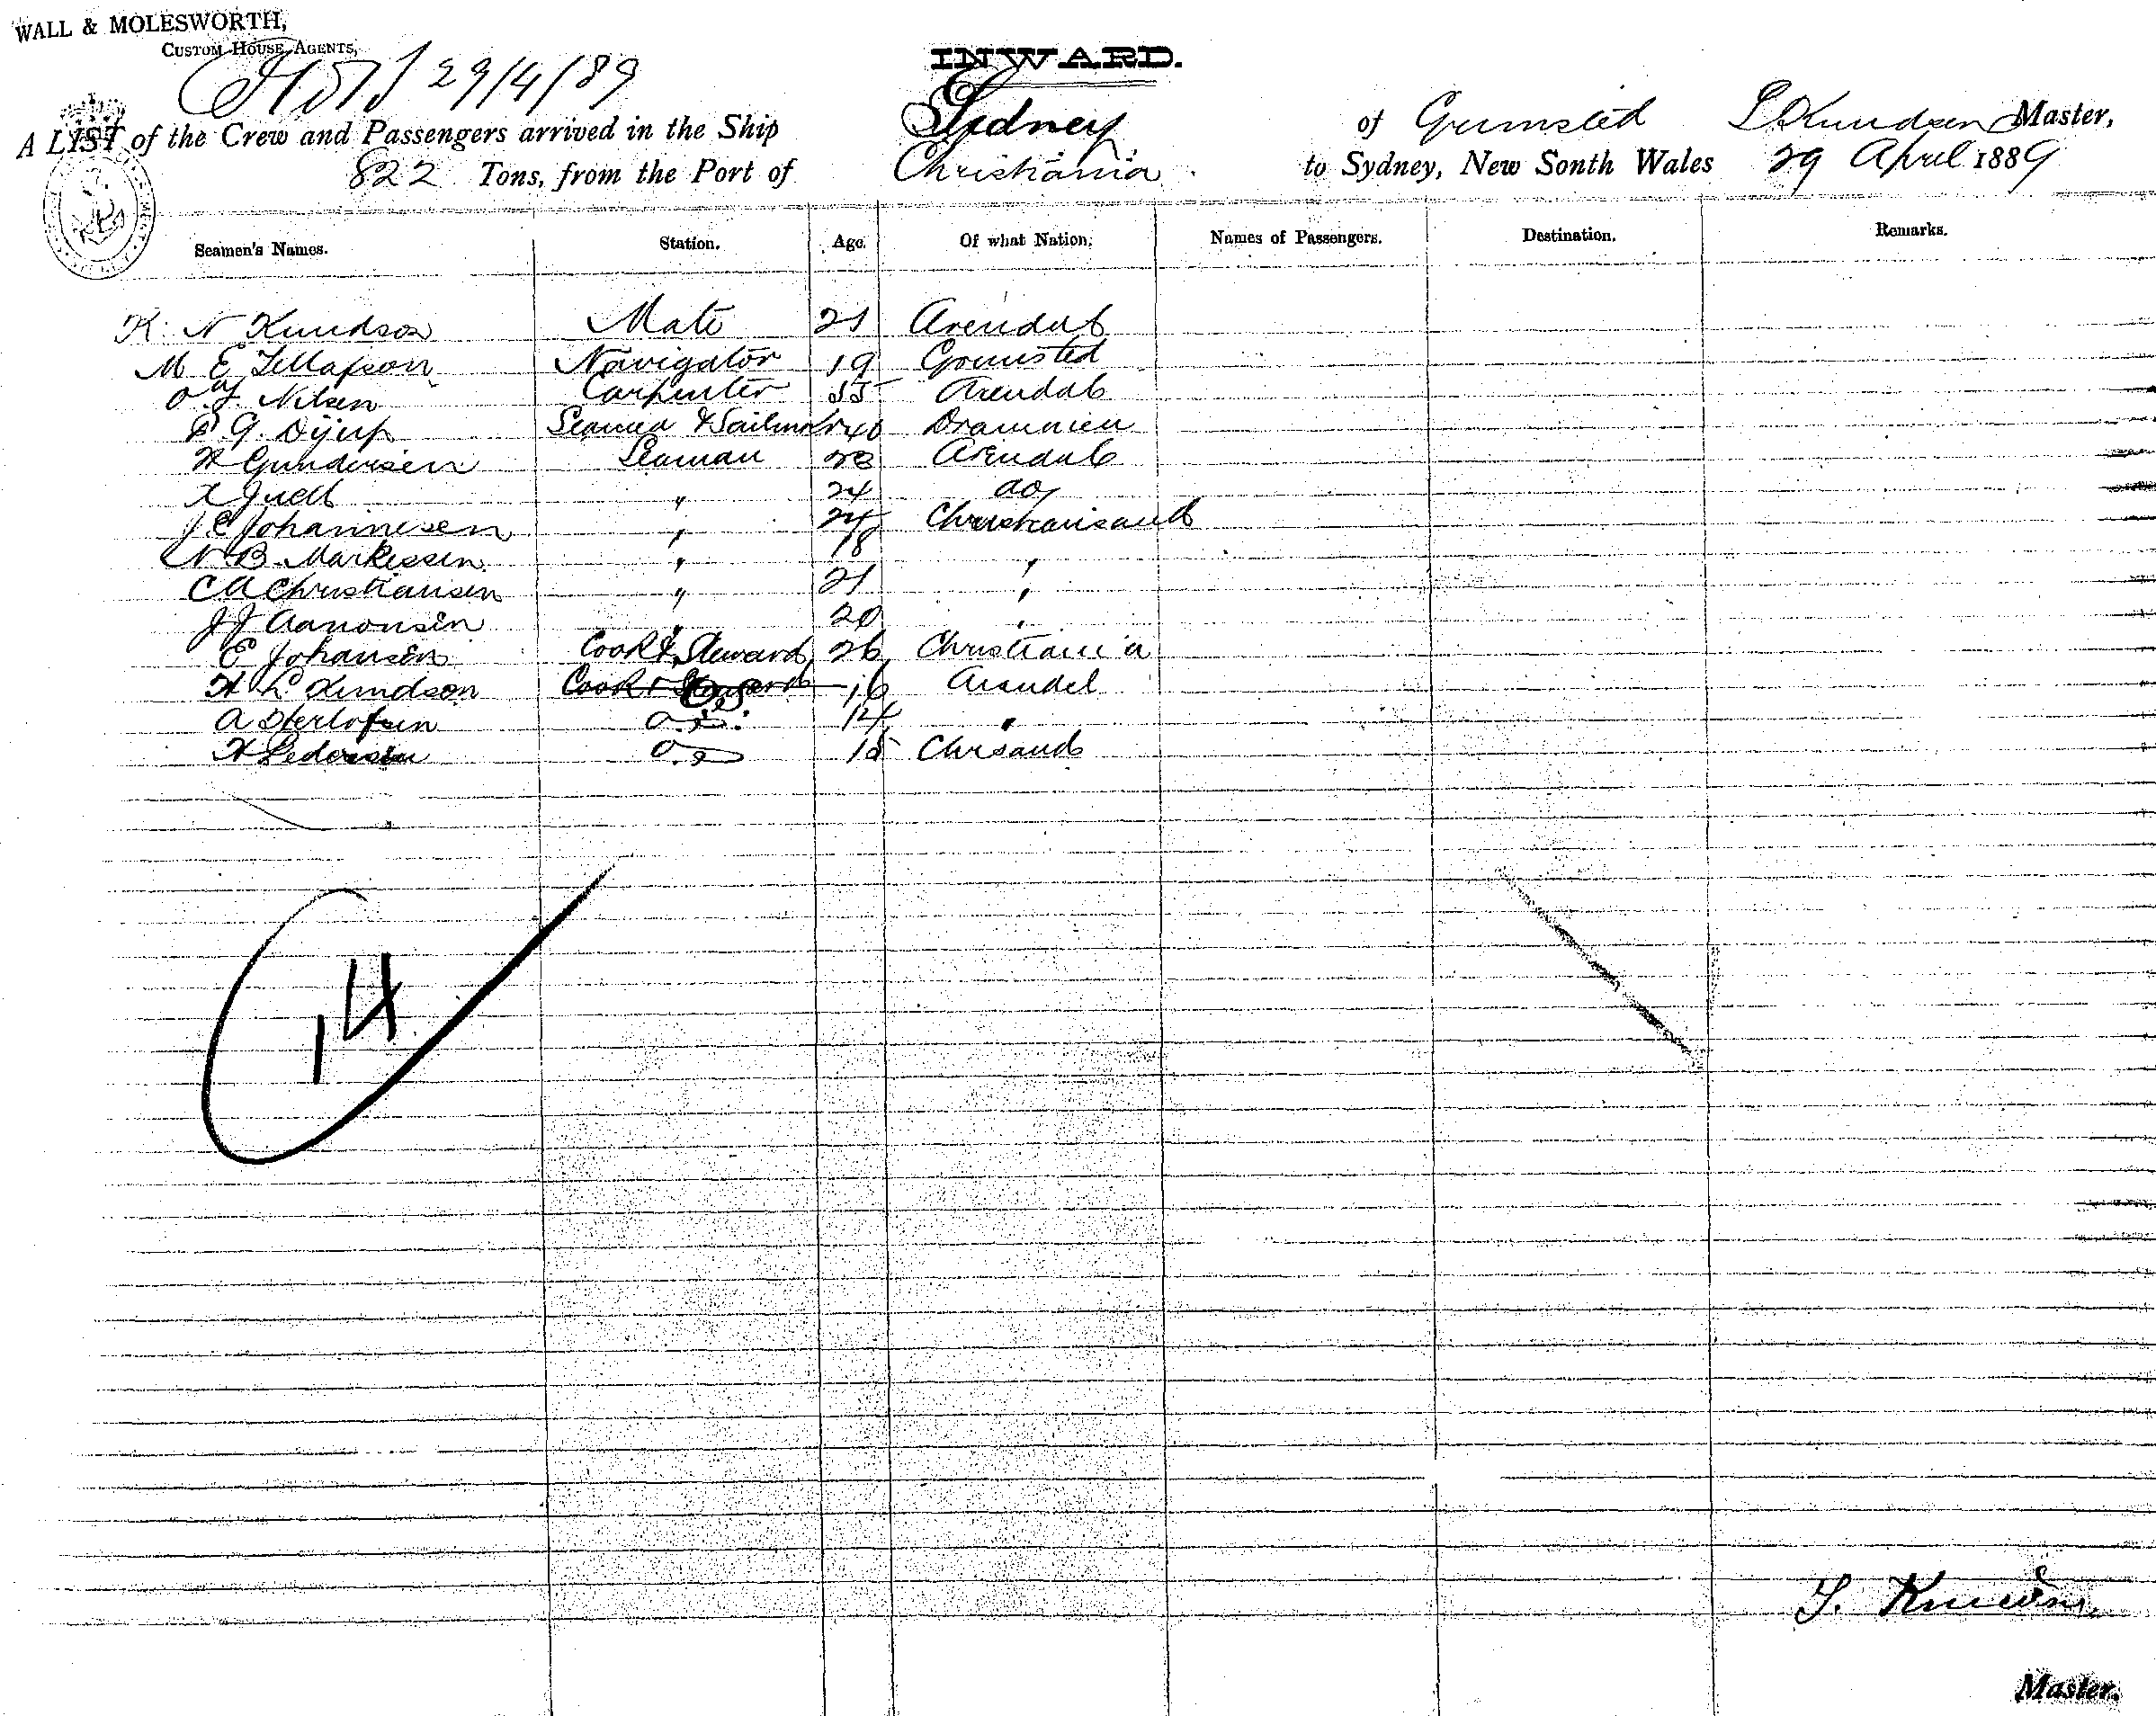 WALL & MOLESWORTH,
CUSTOM HOUSE AGENTS,
29/4/89
INWARD.
A LIST of the Crew and Passengers arrived in the Ship Sydney of Grimsted S Knudsen Master,
822 Tons, from the Port of Christiania to Sydney, New South Wales 29 April 1889
Seamen's Names. Station. Age. Of what Nation. Names of Passengers. Destination. Remarks.
K. N Knudson Mate 21 Arendal
M E Tellafson Navigator 19 Grimsted
Nilsen Carpenter 55 Arendal
G. Seaman & Sailmkr 40 Drammen
H Gundersen Seaman Arendal
Juell " 24 do
J E Johannesen " 24 Christiansand
N B Markussen " 18 "
C A Christiansen " 21 "
J J Aanonsen " 20 "
E Johansen Cook & Steward 26 Christiania
H L Knudson Cook & Steward 16 Arendel
A Herlofsen O.S. 14 "
H Pedersen O.S 15 Chrsand
14
S. Knudsen
Master.